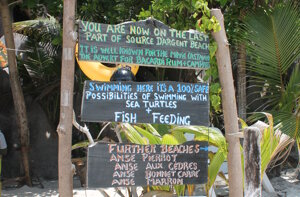 YOU ARE NOW ON THE LAST
PART OF SOURCE D'ARGENT BEACH
IT IS WELL KNOWN FOR THE MOVIE CASTAWAY
THE ADVERT FOR BACARDI RUM + CAMPARI
SWIMMING HERE IT'S A 100% SAFE
POSSIBILITIES OF SWIMMING WITH
SEA TURTLES
+
FISH FEEDING
FURTHER BEACHES
ANSE PIERROT
ANSE AUX CEDRES
ANSE BONNET CARRÉ
ANSE MARRON